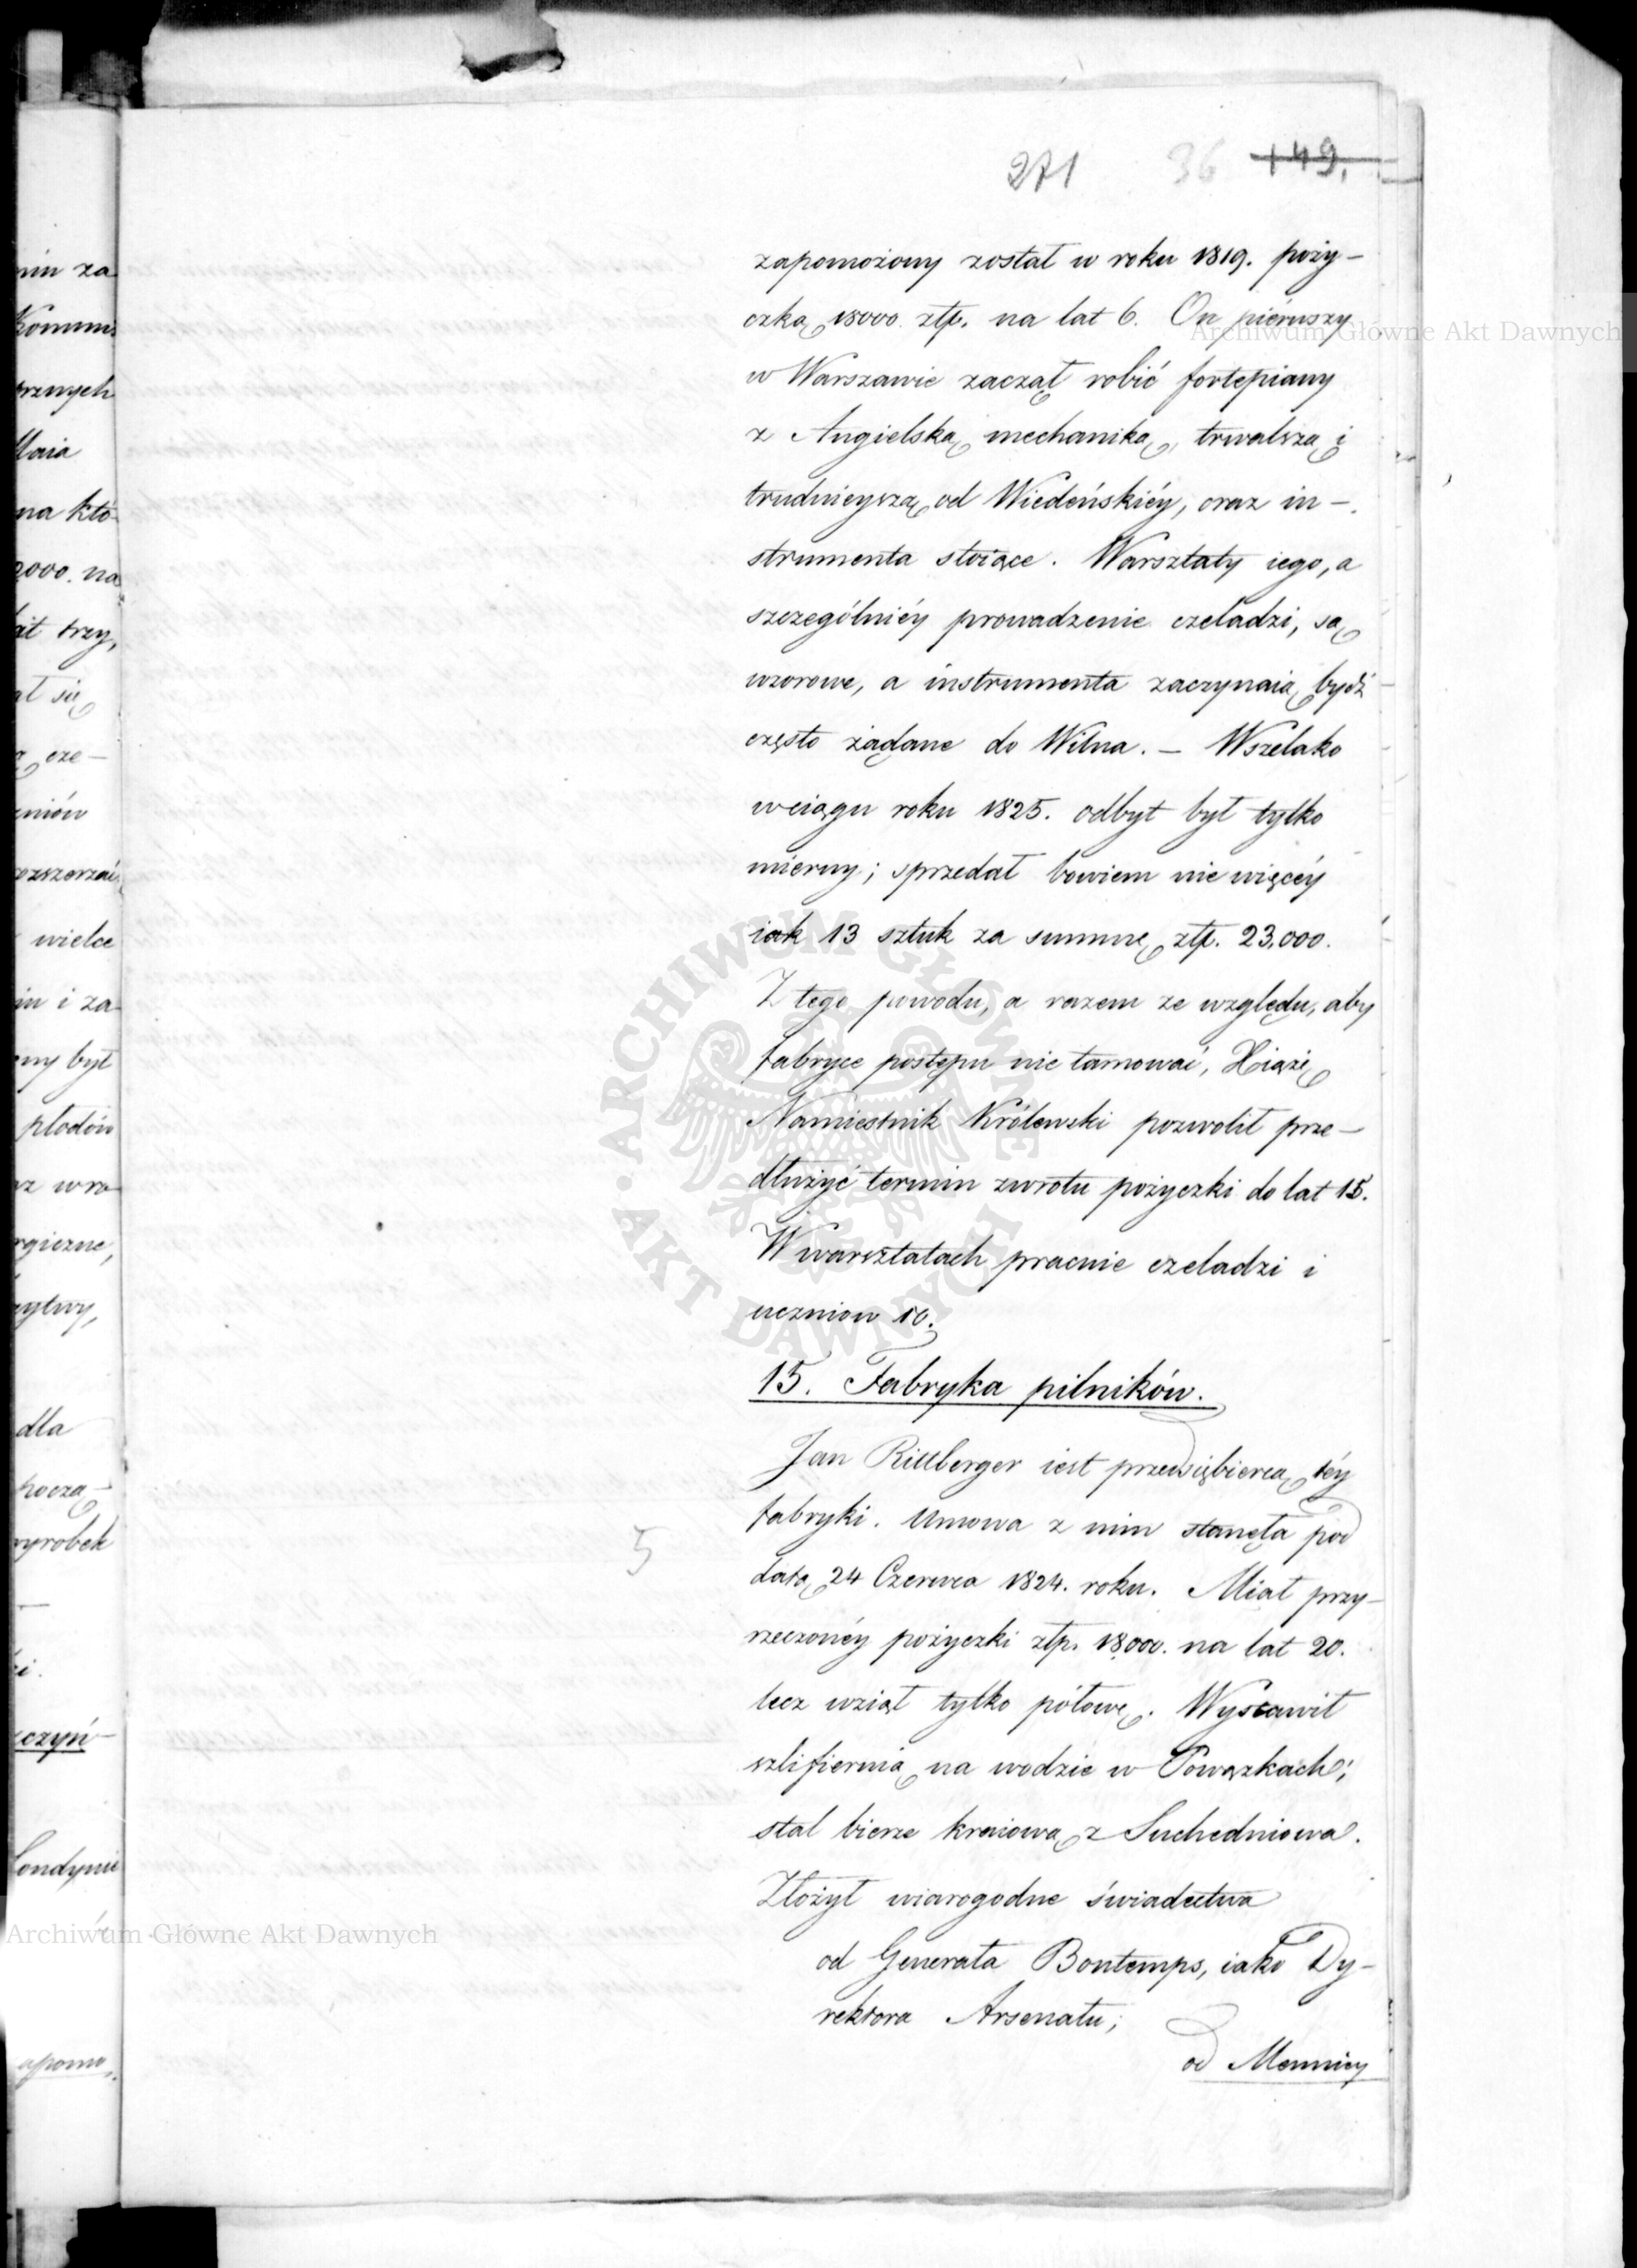 271 36 149.
zapomożony został w roku 1819. poży-
czką 18000 złp. na lat 6. On piérwszy
w Warszawie zaczął robić fortepiany
z Angielską mechaniką, trwalszą i
trudnieyszą od Wiedeńskiéy, oraz in-
strumenta stoiące. Warsztaty iego, a
szczególniéy prowadzenie czeladzi, są
wzorowe, a instrumenta zaczynaią bydź
często żądane do Wilna. — Wszelako
wciągu roku 1825. odbyt był tylko
mierny; sprzedał bowiem nie więcéy
iak 13 sztuk za summę złp. 23,000.
Z tego powodu, a razem ze względu, aby
fabryce postępu nie tamować, Xiążę
Namiestnik Królewski pozwolił prze-
dłużyć termin zwrotu pożyczki do lat 15.
W warsztatach pracuie czeladzi i
uczniow 10.
15. Fabryka pilników.
Jan Rittberger iest przedsiębiercą téy
fabryki. Umowa z nim stanęła pod
datą 24 Czerwca 1824. roku. Miał przy-
rzeczonéy pożyczki złp. 18,000. na lat 20.
lecz wziął tylko połowę. Wystawił
szlifiernią na wodzie w Powązkach;
stal bierze kraiową z Suchedniowa.
Złożył wiarogodne świadectwa
od Generała Bontemps, iako Dy-
rektora Arsenału;
od Mennicy
5
nim za
Kommi
Maia
na któ
000. na
lat trzy,
ał się
cze-
wielce
in i za
ny był
płodów
dla
począ-
wyrobek
czyń-
Londynie
apomo
Archiwum Główne Akt Dawnych
Archiwum Główne Akt Dawnych
ARCHIWUM GŁÓWNE AKT DAWNYCH